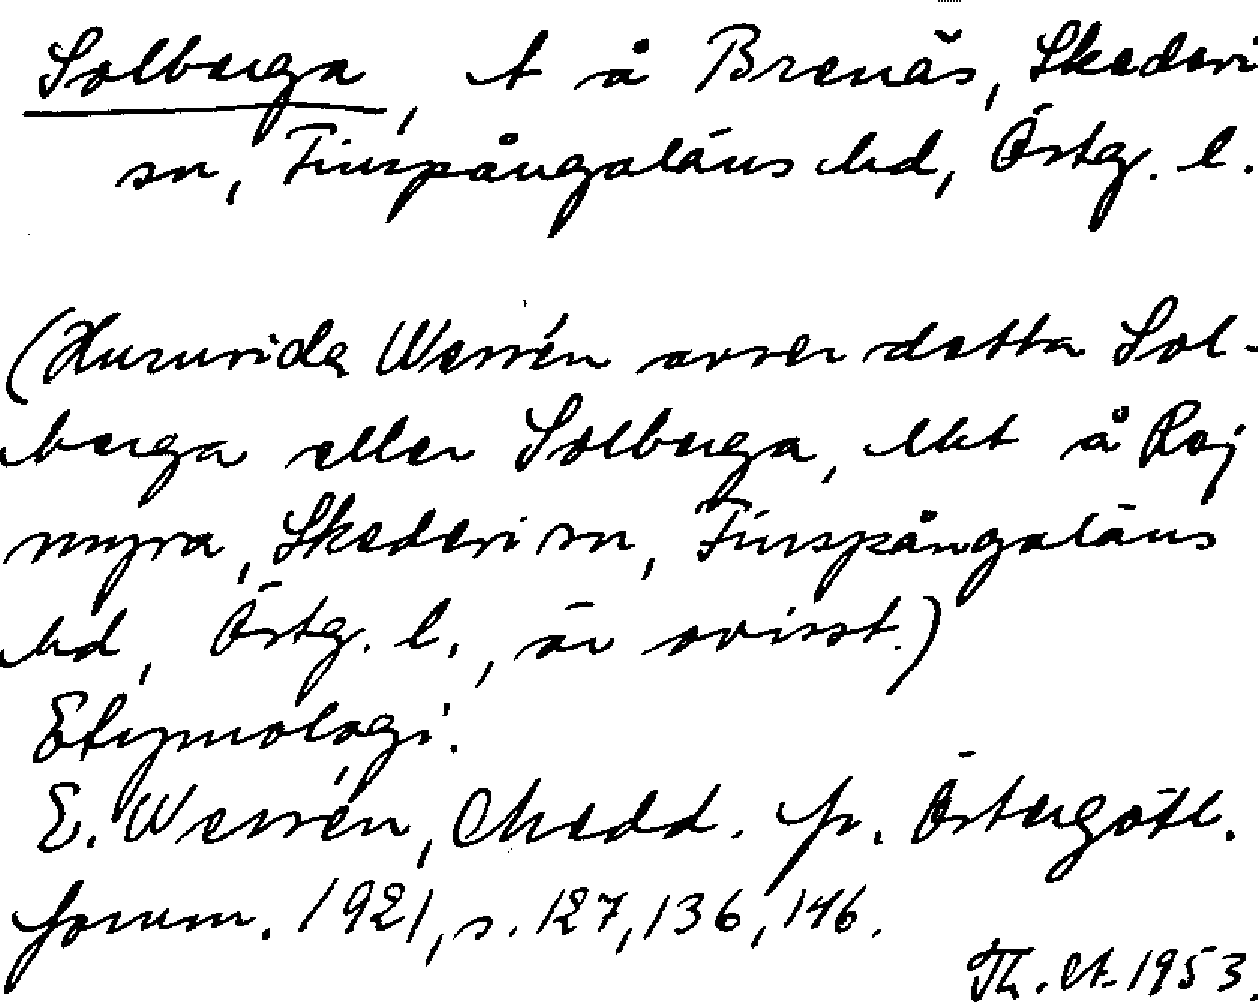 Solberga, t å Brenäs, Skedevi
sn, Finspångaläns hd, Östg. l.
(Huruvida Wessén avser detta Sol-
berga eller Solberga, lht å Rej
myra, Skedevi sn, Finspångaläns
hd, Östg. l., är ovisst.)
Etymologi.
E. Wessén, Medd. fr. Östergötl.
fornm. 1921, s. 127, 136, 146.
Th. 1953.